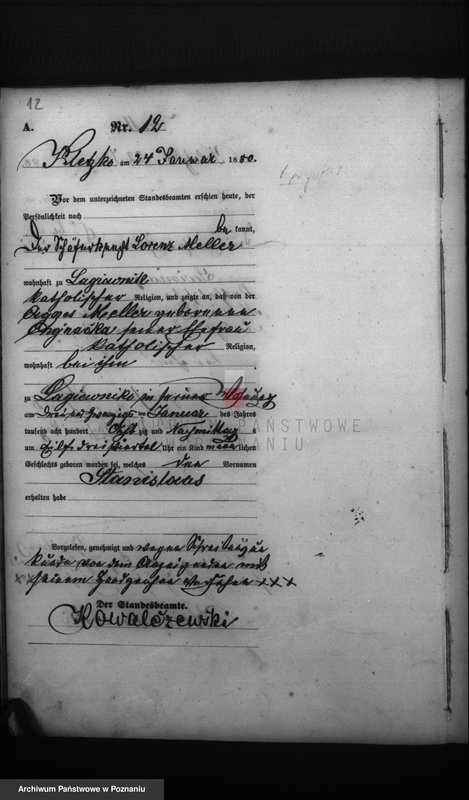 12
A. Nr. 12
Kletzko am 24 Januar 1880.
Vor dem unterzeichneten Standesbeamten erschien heute, der
Persönlichkeit nach
be kannt,
Der Schäferknecht Lorenz Meller
wohnhaft zu Lagiewnik
katholischer Religion, und zeigte an, daß von der
Meller geborenen
seiner Ehefrau
katholischer Religion,
wohnhaft bei ihm
zu Lagiewniki in seiner
am drei und zwanzigs ten Januar des Jahres
tausend acht hundert acht zig und Nachmittag s
um drei viertel Uhr ein Kind männ lichen
Geschlechts geboren worden sei, welches den Vornamen
Stanislaus
erhalten habe
Vorgelesen, genehmigt und wegen
von dem Anzeigenden mit
seinem Handzeichen versehen xxx
Der Standesbeamte.
Kowalczewski
ARCHIWUM PAŃSTWOWE
W POZNANIU
Archiwum Państwowe w Poznaniu